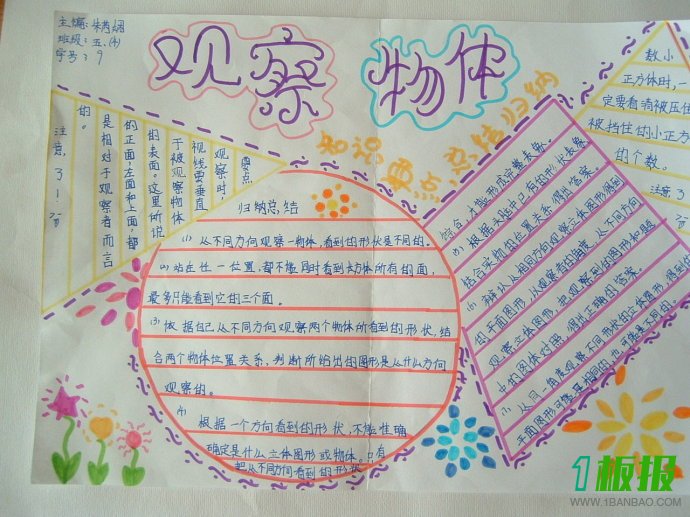 主编:
班级:五.(4)
学号:9
观察 物体
知识要点总结归纳
要点
观察时,
视线要垂直
于被观察物体
的表面。这里所说
的正面,左面和上面,都
是相对于观察者而言
的。
注意了!
归纳总结
(1) 从不同方向观察一物体,看到的形状是不同的。
(2) 站在任一位置,都不能同时看到长方体所有的面,
最多只能看到它的三个面。
(3) 根据自己从不同方向观察两个物体所看到的形状,结
合两个物体位置关系,判断所给出的图形是从什么方向
观察的。
(4) 根据一个方向看到的形状,不能准确
确定是什么立体图形或物体。只有
把从不同方向看到的形状
综合,才能形成完整表象。
(5) 根据实验中已有的形状表象
结合实物的位置关系得出答案
(6) 辨认从相同方向观察立体图形得到
的平面图形,从观察者的角度,从不同方向
观察立体图形,把观察到的图形和题
中的图体对照,得出正确的答案。
(7) 从同一角度观察不同形状的立体图形,得到的
平面图形可能是相同的,也可能是不同的。
数小
正方体时,一
定要看清被压住
被挡住的小正方
的个数。
注意了
1板报
WWW.1BANBAO.COM